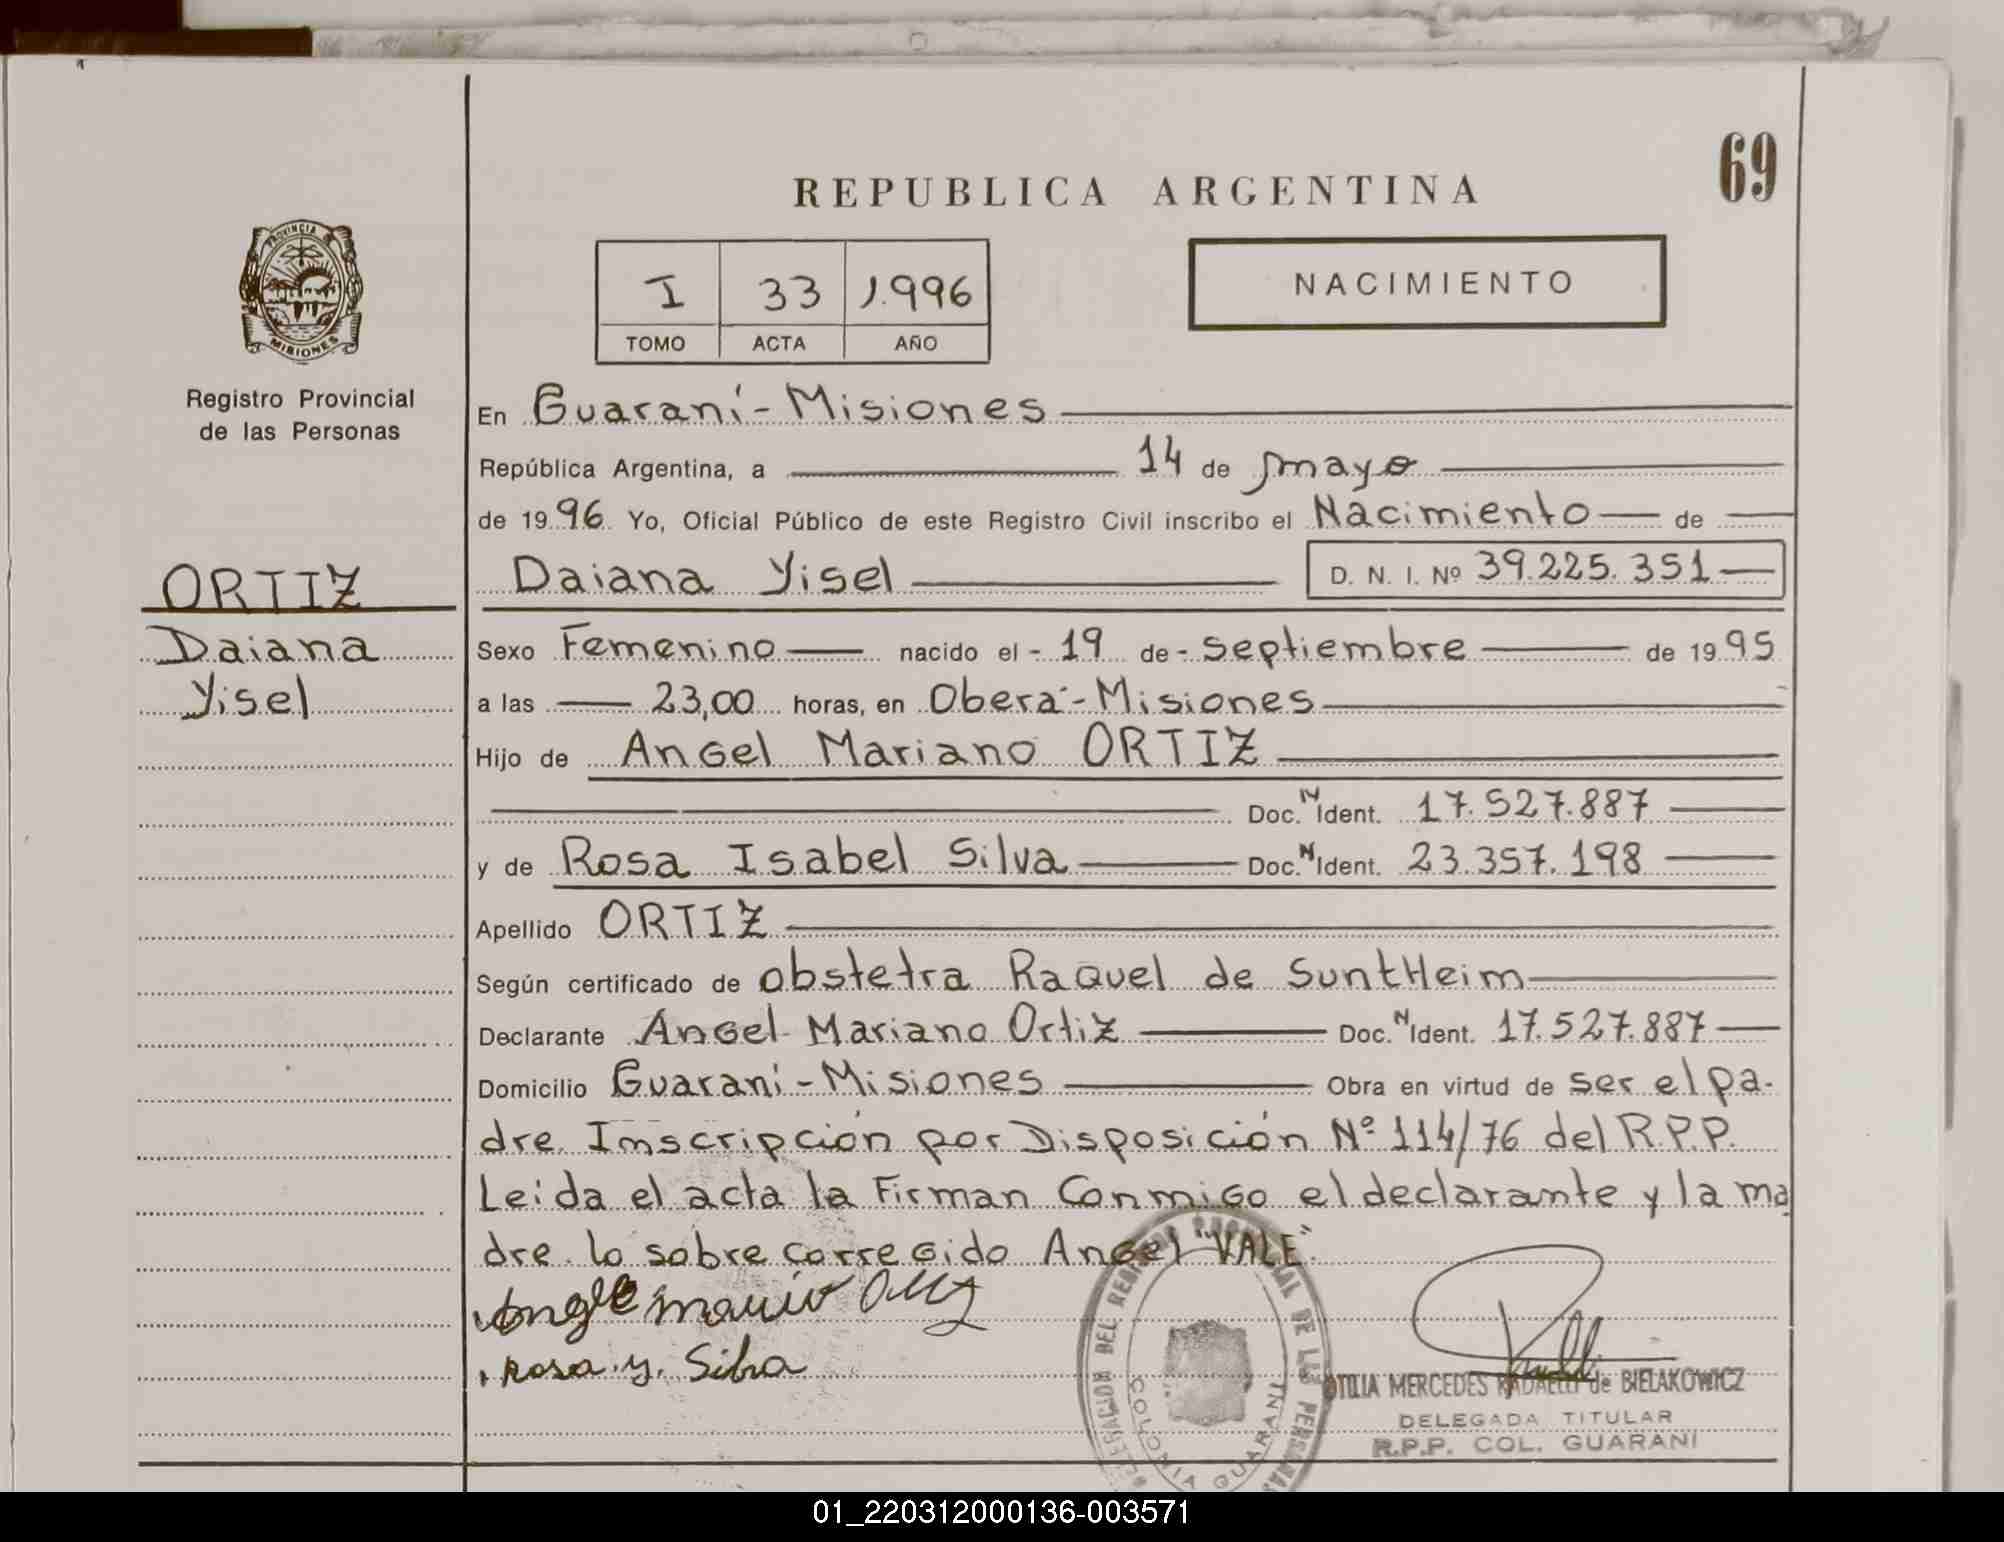 69
REPUBLICA ARGENTINA
PROVINCIA
MISIONES
I 33 1.996
TOMO ACTA AÑO
NACIMIENTO
Registro Provincial
de las Personas
En Guaraní - Misiones
República Argentina, a 14 de mayo
de 1996 Yo, Oficial Público de este Registro Civil inscribo el Nacimiento de
Daiana Yisel D. N. I. Nº 39.225.351
ORTIZ
Daiana
Yisel
Sexo Femenino nacido el - 19 de - septiembre de 1995
a las 23,00 horas, en Oberá - Misiones
Hijo de Angel Mariano ORTIZ
Doc. N Ident. 17.527.887
y de Rosa Isabel Silva Doc. N Ident. 23.357.198
Apellido ORTIZ
Según certificado de obstetra Raquel de Suntheim
Declarante Angel Mariano Ortiz Doc. N Ident. 17.527.887
Domicilio Guaraní - Misiones Obra en virtud de ser el pa-
dre. Inscripción por Disposición Nº 114/76 del R.P.P.
Leida el acta la Firman Conmigo el declarante y la ma
dre. lo sobre corregido Angel "VALE".
rosa y. Silva
DELEGACION DEL REGISTRO PROVINCIAL DE LAS PERSONAS
COLONIA GUARANI
OTILIA MERCEDES RADAELLI de BIELAKOWICZ
DELEGADA TITULAR
R.P.P. COL. GUARANI
01_220312000136-003571